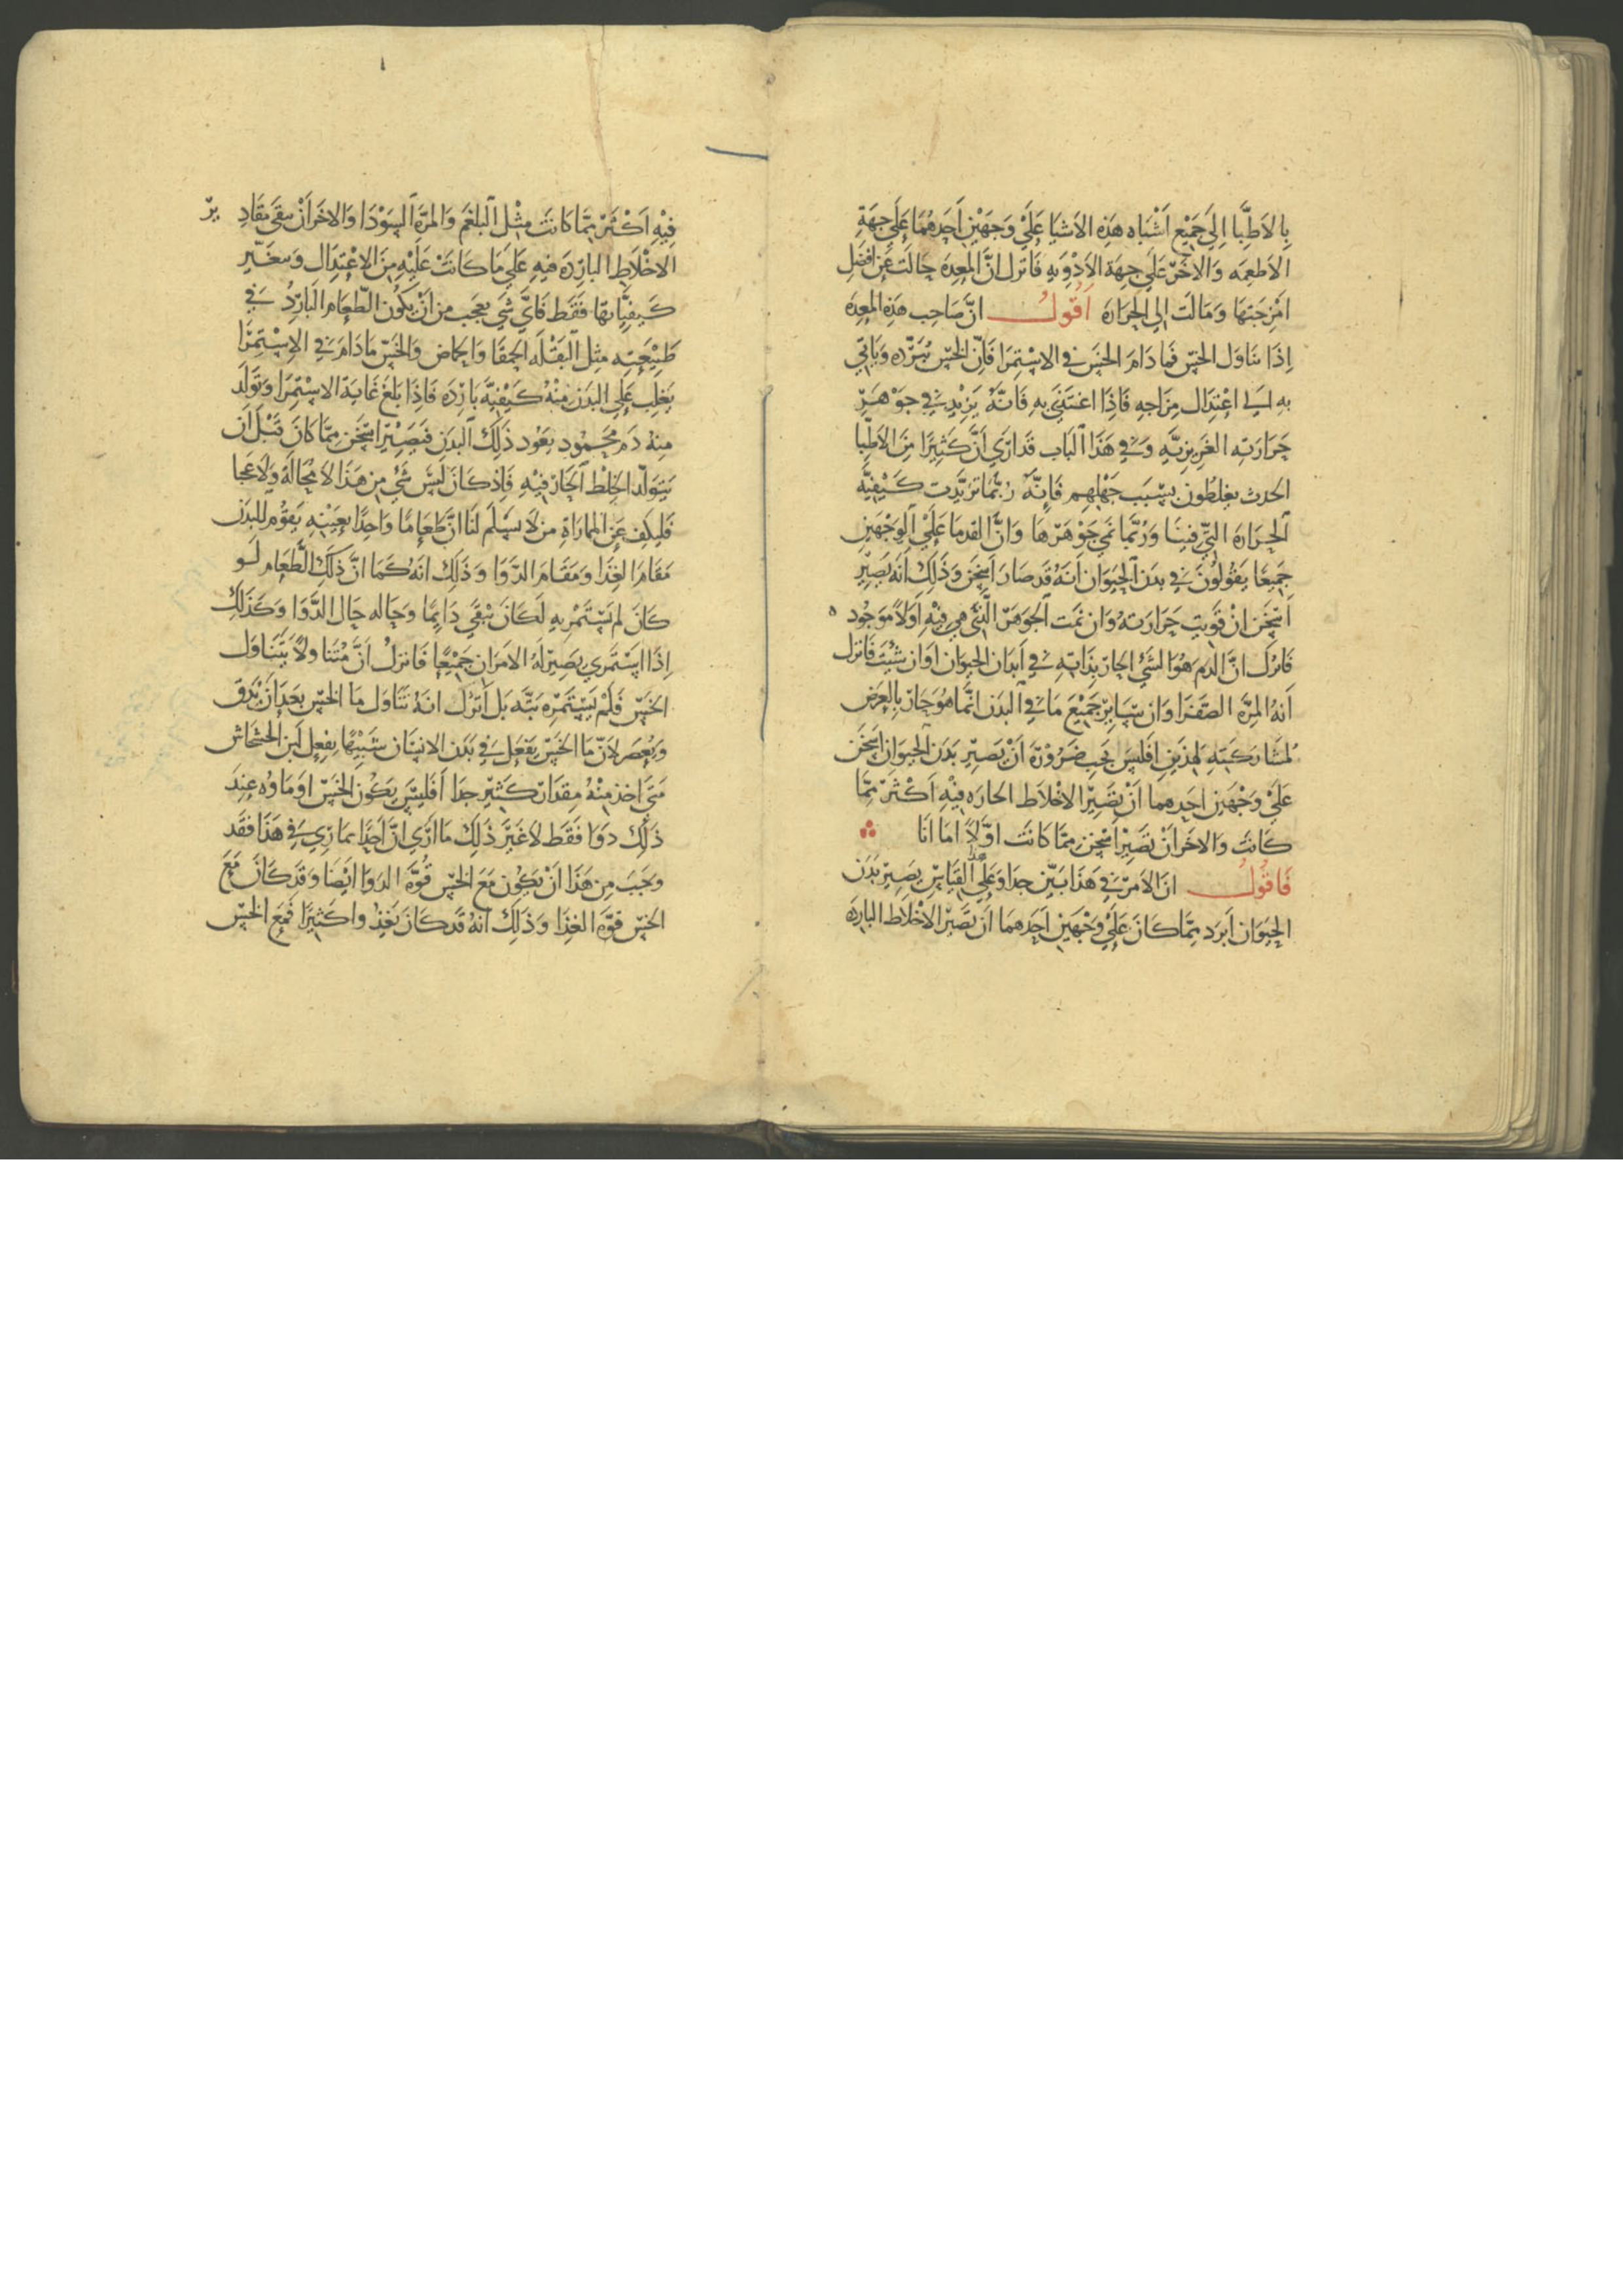 بالاطبا الي جميع اشباه هذه الاشيا علي وجهين احدهما علي جهة
الاطعمه والاخر علي جهة الادويه فانزل ان المعده حالت عن افضل
امزجتها ومالت الي الحراره اقول ان صاحب هذه المعده
اذا تناول الخس فما دام الخس في الاستمرا فان الخس يبرده وياتي
به الي اعتدال مزاجه فاذا اغتذي به فانه يزيد في جوهر
حرارته الغريزيه وفي هذا الباب قد اري ان كثيرا من الاطبا
الحدث يغلطون بسبب جهلهم فانه ربما تزيدت كيفية
الحرارة التي فينا وربما نمي جوهرها وان القدما علي الوجهين
جميعا يقولون في بدن الحيوان انه قد صار اسخن وذلك انه يصير
اسخن ان قويت حرارته وان نمت الجوهر الذي هي فيه اولا موجوده
فانزل ان الدم هو الشي الحار بذاته في ابدان الحيوان اوان شيت فانزل
انه المرة الصفرا وان ساير جميع ما في البدن انما هو حار بالعرض
لمشاركته لهذين افليس يجب ضرورة ان يصير بدن الحيوان اسخن
علي وجهين احدهما ان تصير الاخلاط الحاره فيه اكثر مما
كانت والاخر ان تصير اسخن مما كانت اولا اما انا
فاقول ان الامر في هذا بين جدا وعلي هذا القياس يصير بدن
الحيوان ابرد مما كان علي وجهين احدهما ان تصير الاخلاط البارده
فيه اكثر مما كانت مثل البلغم والمرة السودا والاخر ان تبقي مقادير
الاخلاط البارده فيه علي ما كانت عليه من الاعتدال وتتغير
كيفياتها فقط فاي شي يعجب من ان يكون الطعام البارد في
طبيعته مثل البقلة الحمقا والحماض والخس ما دام في الاستمرا
يغلب علي البدن منه كيفية بارده فاذا بلغ غاية الاستمرا وتولد
منه دم محمود يعود ذلك البدن فيصير اسخن مما كان قبل ان
يتولد الخلط الحار فيه فاذ كان ليس شي من هذا لا محاله ولا عجبا
فليكف عن المماراة من لا يسلم لنا ان طعاما واحدا بعينه يقوم للبدن
مقام الغذا ومقام الدوا وذلك انه كما ان ذلك الطعام لو
كان لم يستمر به لكان يبقي دايما وحاله حال الدوا وكذلك
اذا استمري يصير له الامران جميعا فانزل ان متناولا يتناول
الخس فلم يستمره بته بل انزل انه تناول ما الخس بعد ان يدق
ويعصر لان ما الخس يفعل في بدن الانسان شبيها بفعل لبن الخشخاش
متي اخذ منه مقدار كثير جدا افليس يكون الخس او ماوه عند
ذلك دوا فقط لا غير ذلك ما اري ان احدا يماري في هذا فقد
وجب من هذا ان يكون مع الخس قوة الدوا ايضا وقد كان مع
الخس قوة الغذا وذلك انه قد كان يغذوا كثيرا فمع الخس